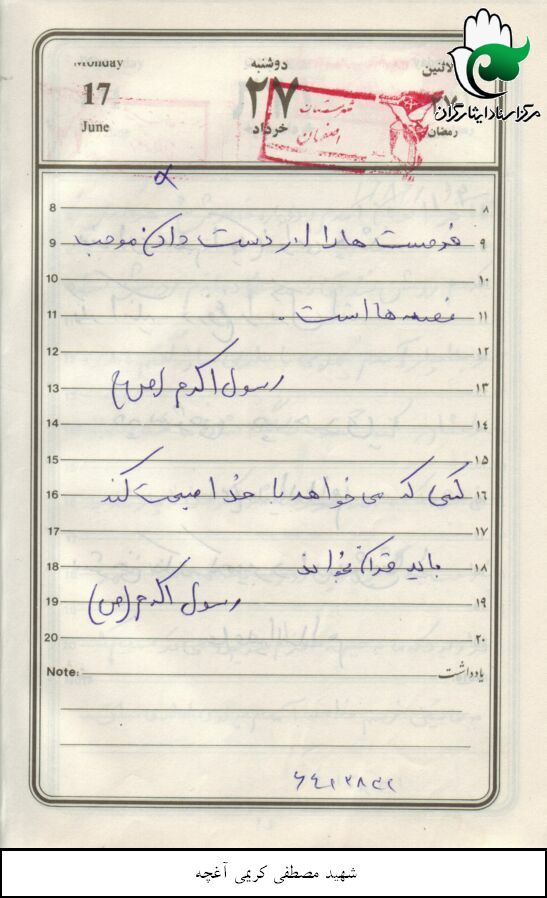 Monday
17
June
دوشنبه
۲۷
خرداد
الاثنین
۲۷
رمضان
مرکز اسناد ایثارگران
شهرستان
اصفهان
8 ۸
فرصت ها را از دست دادن موجب
9 ۹
10 ۱۰
غصه ها است .
11 ۱۱
12 ۱۲
رسول اکرم (ص)
13 ۱۳
14 ۱۴
15 ۱۵
کسی که می خواهد با خدا صحبت کند
16 ۱۶
17 ۱۷
باید قرآن بخواند
18 ۱۸
رسول اکرم (ص)
19 ۱۹
20 ۲۰
Note: یادداشت
شهید مصطفی کریمی آغچه